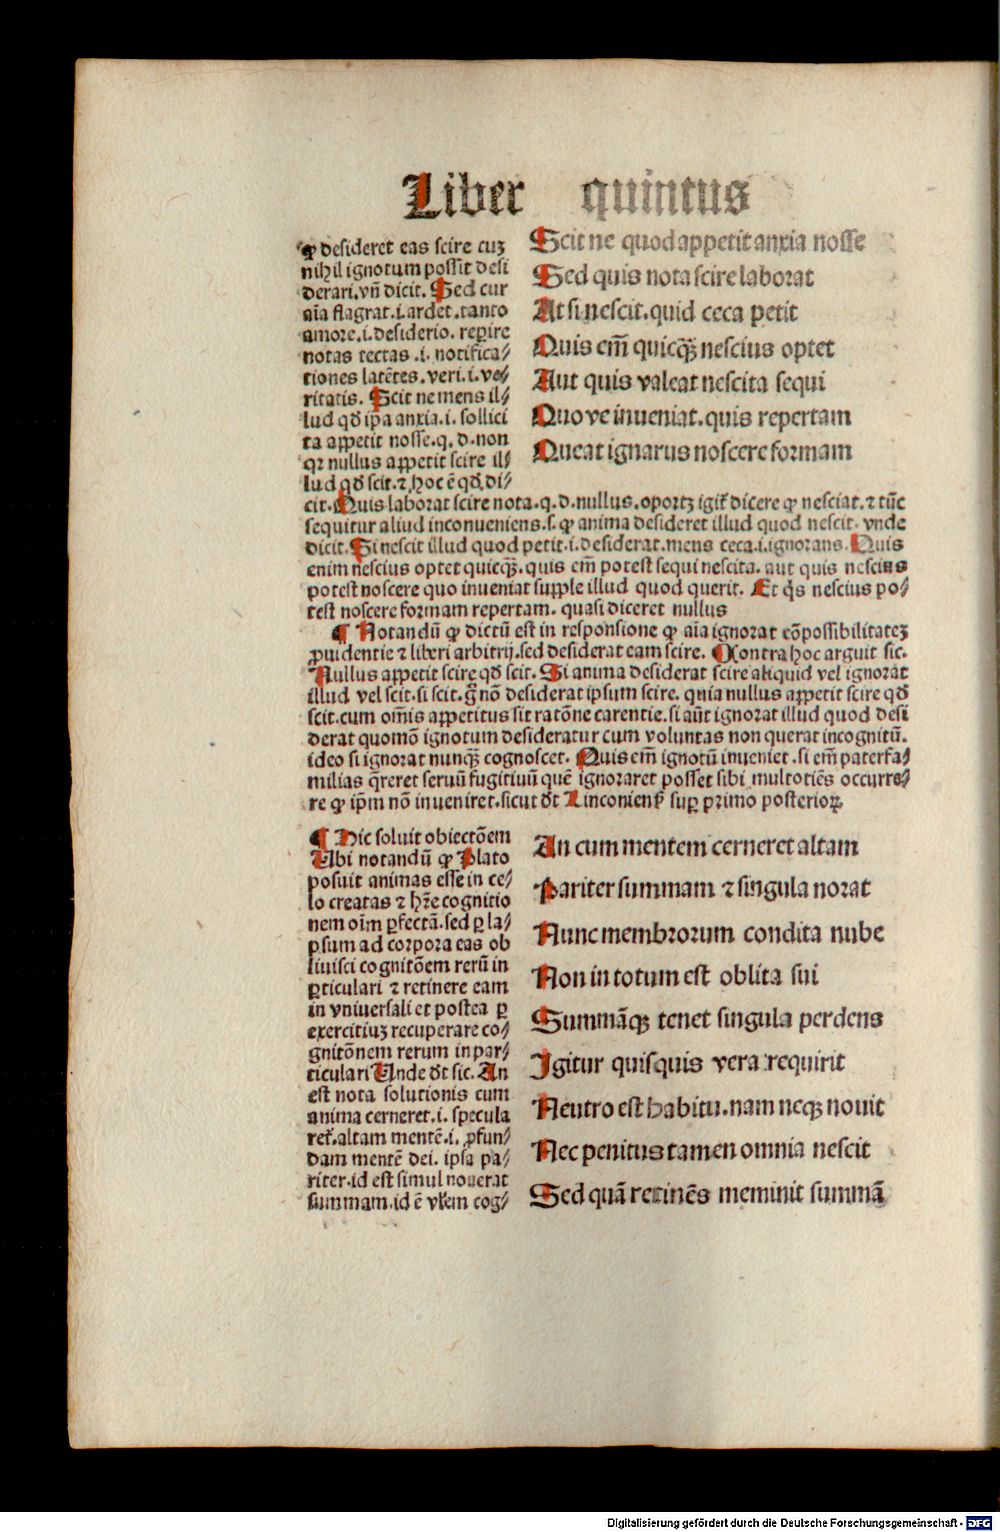 Liber quintus
ꝙ desideret eas scire cuȝ
nihil ignotum possit desi
derari.vñ dicit. Sed cur
aīa flagrat.i.ardet.tanto
amore.i.desiderio. reꝑire
notas tectas .i. notifica/
tiones latētes.veri.i.ve/
ritatis. Scit ne mens il/
lud qđ ip̄a anxia.i. sollici
ta appetit nosse.q. d.non
qꝛ nullus appetit scire il/
lud qđ scit.⁊ hoc ē qđ di/
Scit ne quod appetit anxia nosse
Sed quis nota scire laborat
At si nescit.quid ceca petit
Quis em̄ quicqȝ̄ nescius optet
Aut quis valeat nescita sequi
Quo ve inveniat.quis repertam
Queat ignarus noscere formam
cit.Quis laborat scire nota.q.d.nullus.oportȝ igit̄ dicere ꝙ nesciat.⁊ tūc
sequitur aliud inconueniens.s. ꝙ anima desideret illud quod nescit. vnde
dicit.Si nescit illud quod petit.i.desiderat.mens ceca.i.ignorans.Quis
enim nescius optet quicqȝ̄.quis em̄ potest sequi nescita. aut quis nescius
potest noscere quo inueniat supple illud quod querit. Et q̄s nescius po/
test noscere formam repertam. quasi diceret nullus
¶ Notandū ꝙ dictū est in responsione ꝙ aīa ignorat cōpossibilitateȝ
ꝓuidentie ⁊ liberi arbitrij.sed desiderat eam scire. Contra hoc arguit sic.
Nullus appetit scire qđ scit. Si anima desiderat scire aliquid vel ignorat
illud vel scit.si scit.g̊ nō desiderat ipsum scire. quia nullus appetit scire qđ
scit.cum om̄is appetitus sit ratōne carentie.si aūt ignorat illud quod desi
derat quomō ignotum desideratur cum voluntas non querat incognitū.
ideo si ignorat nunqȝ̄ cognoscet. Quis em̄ ignotū inueniet .si em̄ paterfa/
milias q̄reret seruū fugitiuū quē ignoraret posset sibi multotiēs occurre/
re ꝙ ip̄m nō inueniret.sicut dt̄ Linconienẜ suꝑ primo posterioꝝ
¶ Hic soluit obiectōem
Ubi notandū ꝙ Plato
posuit animas esse in ce/
lo creatas ⁊ hr̄e cognitio
nem oīm ꝑfectā.sed ꝑ la/
psum ad corpora eas ob
liuisci cognitōem rerū in
ꝑticulari ⁊ retinere eam
in vniuersali et postea ꝑ
exercitiuȝ recuperare co/
gnitōnem rerum in par/
ticulari Unde dt̄ sic. An
est nota solutionis cum
anima cerneret.i. specula
ret̄.altam mentē.i. ꝓfun/
dam mentē dei. ipsa pa/
riter.id est simul nouerat
summam.id ē vl̄em cog/
An cum mentem cerneret altam
Pariter summam ⁊ singula norat
Nunc membrorum condita nube
Non in totum est oblita sui
Summāqȝ tenet singula perdens
Igitur quisquis vera requirit
Neutro est habitu.nam neqȝ nouit
Nec penitus tamen omnia nescit
Sed quā retinēs meminit summā
Digitalisierung gefördert durch die Deutsche Forschungsgemeinschaft - DFG